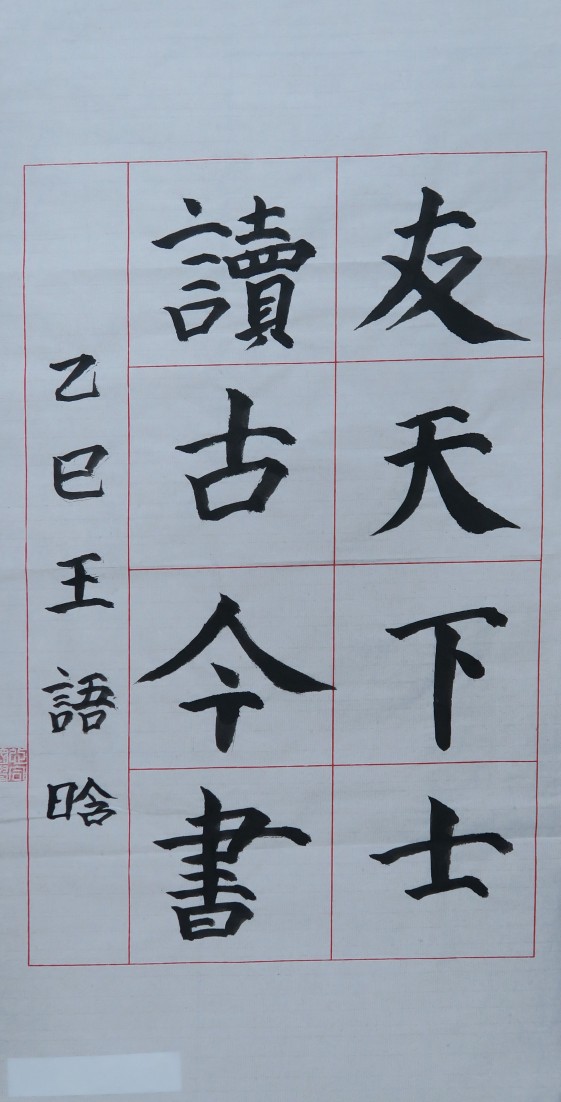 友天下士
讀古今書
乙巳王語晗